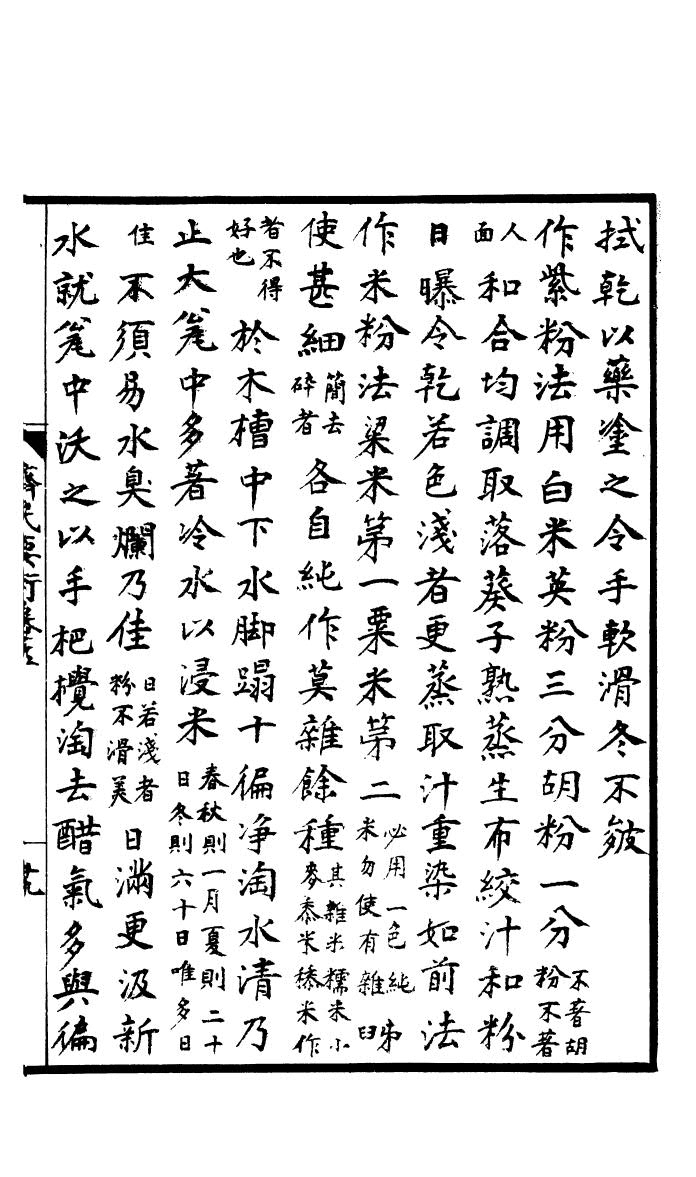 拭乾以藥塗之令手軟滑冬不皴
作紫粉法用白米英粉三分胡粉一分不著胡粉不著
人面和合均調取落葵子熟蒸生布絞汁和粉
日曝令乾若色淺者更蒸取汁重染如前法
作米粉法粱米第一粟米第二必用一色純米勿使有雜
使甚細簡去碎者各自純作莫雜餘種其雜米糯米小麥黍米穄米作
者不得好也於木槽中下水脚蹋十徧净淘水清乃
止大瓮中多著冷水以浸米春秋則一月夏則二十日冬則六十日唯多日
佳不須易水臭爛乃佳日若淺者粉不滑美日滿更汲新
水就瓮中沃之以手杷攪淘去醋氣多與徧
齊民要術卷五